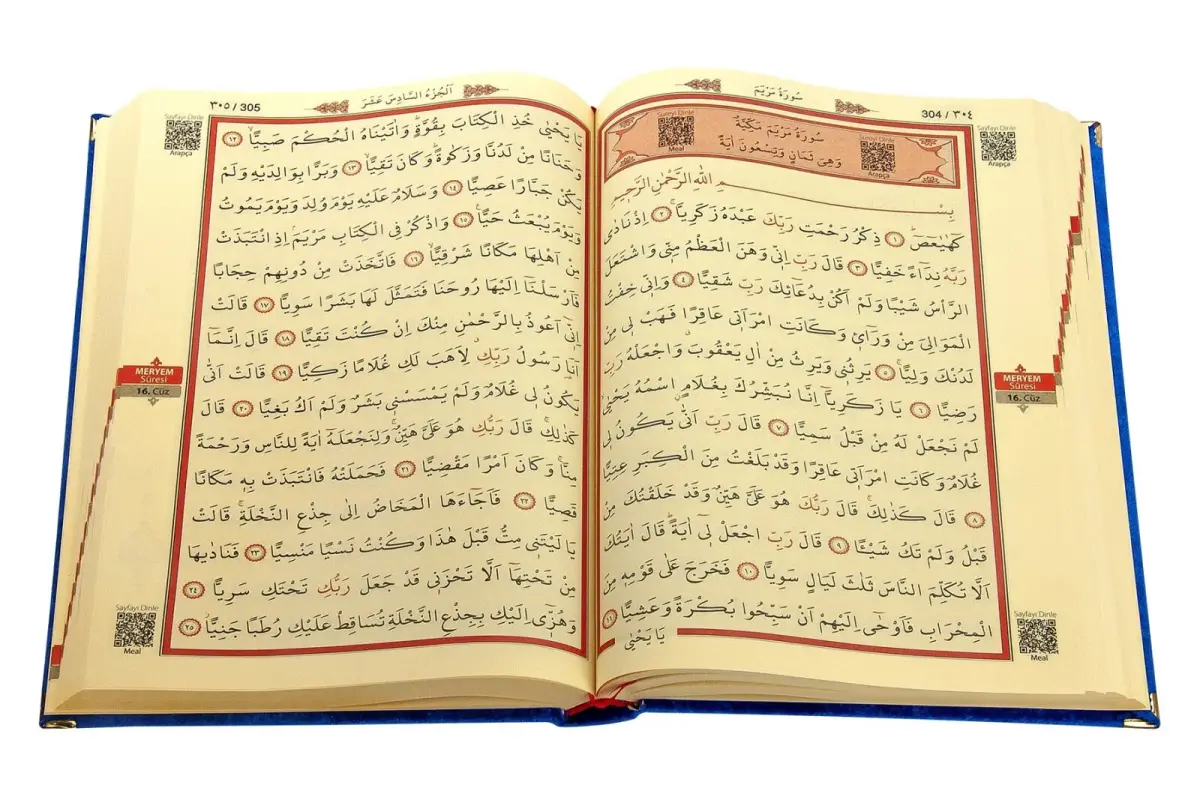 سُورَةُ مَرْيَمَ
304 / ٣٠٤
Sureyi Dinle
Meal
سُورَةُ مَرْيَمَ مَكِّيَّةٌ
وَهِيَ ثَمَانٍ وَتِسْعُونَ اٰيَةً
Sureyi Dinle
Arapça
Sayfayı Dinle
Arapça
بِسْمِ اللّٰهِ الرَّحْمٰنِ الرَّحٖيمِ
كٓهٰيٰعٓصٓ ﴿١﴾ ذِكْرُ رَحْمَتِ رَبِّكَ عَبْدَهُ زَكَرِيَّاۚ ﴿٢﴾ اِذْ نَادٰى
رَبَّهُ نِدَٓاءً خَفِيًّا ﴿٣﴾ قَالَ رَبِّ اِنّٖي وَهَنَ الْعَظْمُ مِنّٖي وَاشْتَعَلَ
الرَّأْسُ شَيْبًا وَلَمْ اَكُنْ بِدُعَٓائِكَ رَبِّ شَقِيًّا ﴿٤﴾ وَاِنّٖي خِفْتُ
الْمَوَالِيَ مِنْ وَرَٓائٖي وَكَانَتِ امْرَاَتٖي عَاقِرًا فَهَبْ لٖي مِنْ
لَدُنْكَ وَلِيًّاۙ ﴿٥﴾ يَرِثُنٖي وَيَرِثُ مِنْ اٰلِ يَعْقُوبَ وَاجْعَلْهُ رَبِّ
رَضِيًّا ﴿٦﴾ يَا زَكَرِيَّٓا اِنَّا نُبَشِّرُكَ بِغُلَامٍ اسْمُهُ يَحْيٰى
لَمْ نَجْعَلْ لَهُ مِنْ قَبْلُ سَمِيًّا ﴿٧﴾ قَالَ رَبِّ اَنّٰى يَكُونُ لٖي
غُلَامٌ وَكَانَتِ امْرَاَتٖي عَاقِرًا وَقَدْ بَلَغْتُ مِنَ الْكِبَرِ عِتِيًّا
﴿٨﴾ قَالَ كَذٰلِكَۚ قَالَ رَبُّكَ هُوَ عَلَيَّ هَيِّنٌ وَقَدْ خَلَقْتُكَ مِنْ
قَبْلُ وَلَمْ تَكُ شَيْـًٔا ﴿٩﴾ قَالَ رَبِّ اجْعَلْ لٖٓي اٰيَةًۜ قَالَ اٰيَتُكَ
اَلَّا تُكَلِّمَ النَّاسَ ثَلٰثَ لَيَالٍ سَوِيًّا ﴿١٠﴾ فَخَرَجَ عَلٰى قَوْمِهٖ مِنَ
الْمِحْرَابِ فَاَوْحٰٓى اِلَيْهِمْ اَنْ سَبِّحُوا بُكْرَةً وَعَشِيًّا ﴿١١﴾
يَا يَحْيٰى
MERYEM
Sûresi
16. Cüz
Sayfayı Dinle
Meal
اَلْجُزْءُ السَّادِسَ عَشَرَ
٣٠٥ / 305
Sayfayı Dinle
Arapça
يَا يَحْيٰى خُذِ الْكِتَابَ بِقُوَّةٍۜ وَاٰتَيْنَاهُ الْحُكْمَ صَبِيًّاۙ ﴿١٢﴾
وَحَنَانًا مِنْ لَدُنَّا وَزَكٰوةًۜ وَكَانَ تَقِيًّاۙ ﴿١٣﴾ وَبَرًّا بِوَالِدَيْهِ وَلَمْ
يَكُنْ جَبَّارًا عَصِيًّا ﴿١٤﴾ وَسَلَامٌ عَلَيْهِ يَوْمَ وُلِدَ وَيَوْمَ يَمُوتُ
وَيَوْمَ يُبْعَثُ حَيًّا۟ ﴿١٥﴾ وَاذْكُرْ فِي الْكِتَابِ مَرْيَمَۢ اِذِ انْتَبَذَتْ
مِنْ اَهْلِهَا مَكَانًا شَرْقِيًّاۙ ﴿١٦﴾ فَاتَّخَذَتْ مِنْ دُونِهِمْ حِجَابًا
فَاَرْسَلْنَٓا اِلَيْهَا رُوحَنَا فَتَمَثَّلَ لَهَا بَشَرًا سَوِيًّا ﴿١٧﴾ قَالَتْ
اِنّٖٓي اَعُوذُ بِالرَّحْمٰنِ مِنْكَ اِنْ كُنْتَ تَقِيًّا ﴿١٨﴾ قَالَ اِنَّمَٓا
اَنَا رَسُولُ رَبِّكِۗ لِاَهَبَ لَكِ غُلَامًا زَكِيًّا ﴿١٩﴾ قَالَتْ اَنّٰى
يَكُونُ لٖي غُلَامٌ وَلَمْ يَمْسَسْنٖي بَشَرٌ وَلَمْ اَكُ بَغِيًّا ﴿٢٠﴾ قَالَ
كَذٰلِكِۚ قَالَ رَبُّكِ هُوَ عَلَيَّ هَيِّنٌۚ وَلِنَجْعَلَهُٓ اٰيَةً لِلنَّاسِ وَرَحْمَةً
مِنَّاۚ وَكَانَ اَمْرًا مَقْضِيًّا ﴿٢١﴾ فَحَمَلَتْهُ فَانْتَبَذَتْ بِهٖ مَكَانًا
قَصِيًّا ﴿٢٢﴾ فَاَجَٓاءَهَا الْمَخَاضُ اِلٰى جِذْعِ النَّخْلَةِۚ قَالَتْ
يَا لَيْتَنٖي مِتُّ قَبْلَ هٰذَا وَكُنْتُ نَسْيًا مَنْسِيًّا ﴿٢٣﴾ فَنَادٰيهَا
مِنْ تَحْتِهَٓا اَلَّا تَحْزَنٖي قَدْ جَعَلَ رَبُّكِ تَحْتَكِ سَرِيًّا ﴿٢٤﴾
وَهُزّٖٓي اِلَيْكِ بِجِذْعِ النَّخْلَةِ تُسَاقِطْ عَلَيْكِ رُطَبًا جَنِيًّاۘ ﴿٢٥﴾
MERYEM
Sûresi
16. Cüz
Sayfayı Dinle
Meal